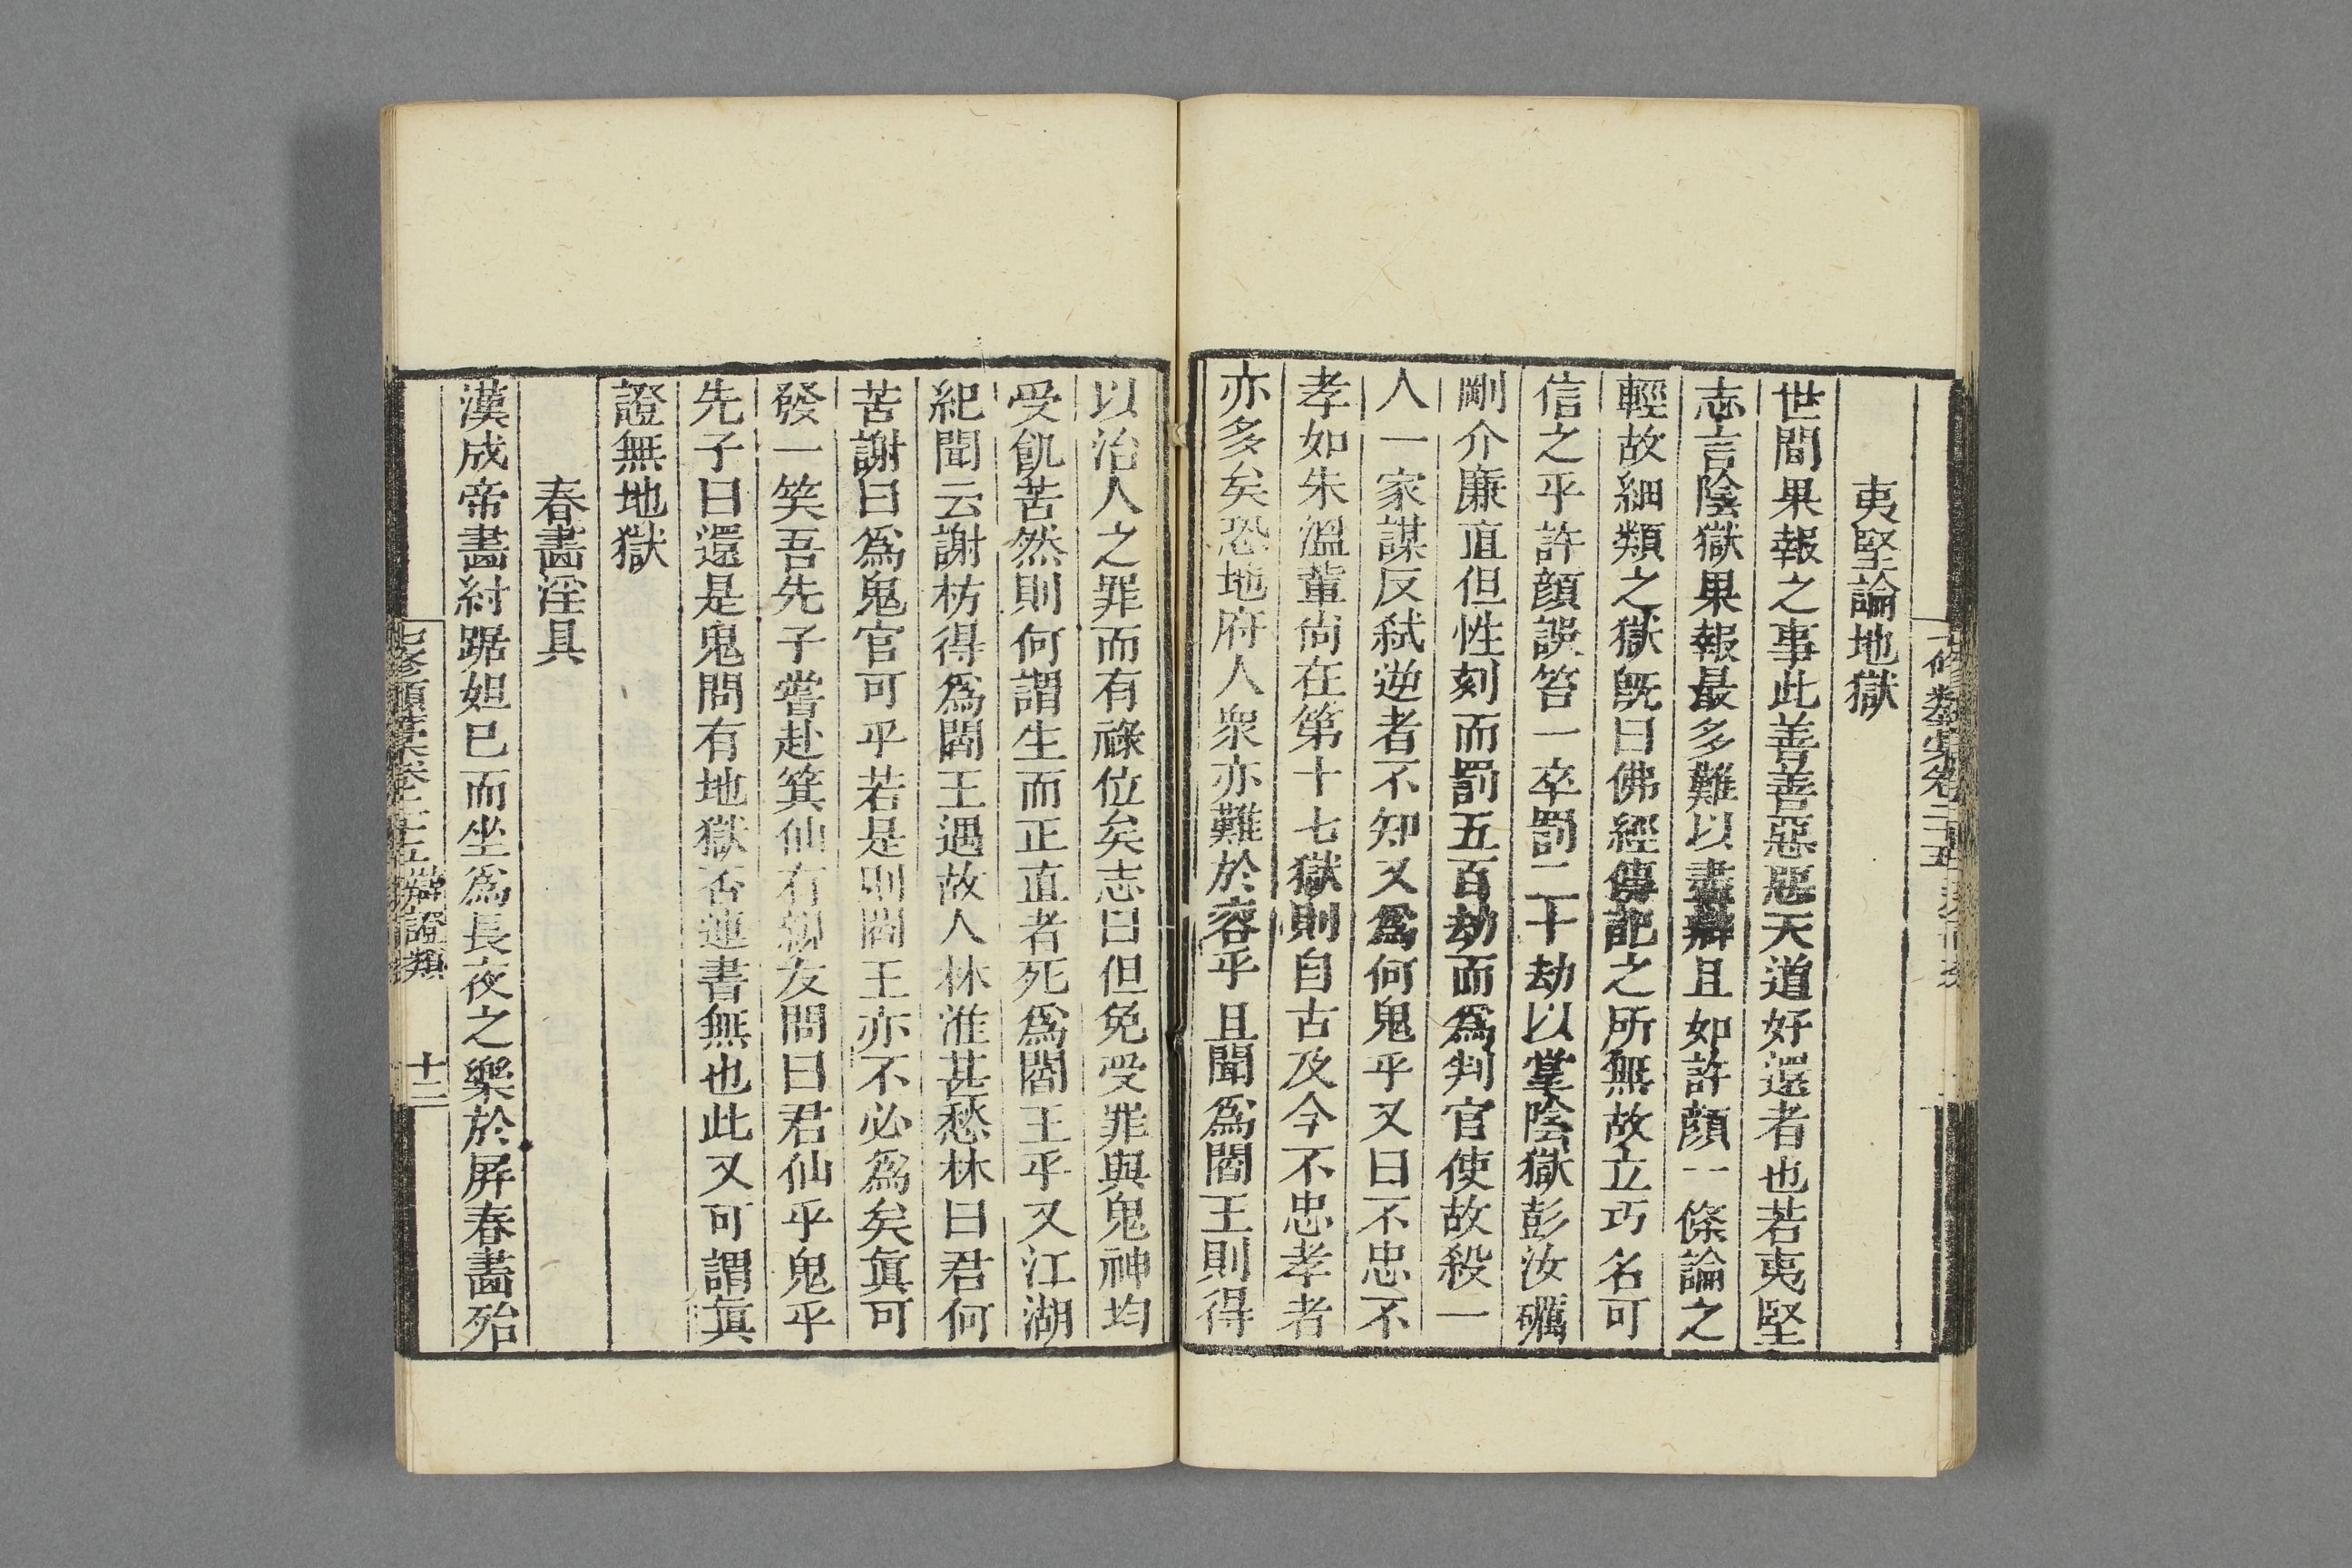 夷堅論地獄
世間果報之事此善善惡惡天道好還者也若夷堅
志言陰獄果報最多難以盡辯且如許顏一條論之
輕故細類之獄旣曰佛經傳記之所無故立巧名可
信之乎許顏誤笞一卒罰二十劫以掌陰獄彭汝礪
剛介廉直但性刻而罰五百劫而爲判官使故殺一
人一家謀反弑逆者不知又爲何鬼乎又曰不忠不
孝如朱溫輩尙在第十七獄則自古及今不忠孝者
亦多矣恐地府人衆亦難於容乎且聞爲閻王則得
以治人之罪而有祿位矣志曰但免受罪與鬼神均
受飢苦然則何謂生而正直者死爲閻王乎又江湖
紀聞云謝枋得爲閻王遇故人林淮甚愁林曰君何
苦謝曰爲鬼官可乎若是則閻王亦不必爲矣眞可
發一笑吾先子嘗赴箕仙有親友問曰君仙乎鬼乎
先子曰還是鬼問有地獄否連書無也此又可謂眞
證無地獄
春畵淫具
漢成帝畵紂踞妲己而坐爲長夜之樂於屏春畵殆
七修類稾卷二十五 辯證類
十二